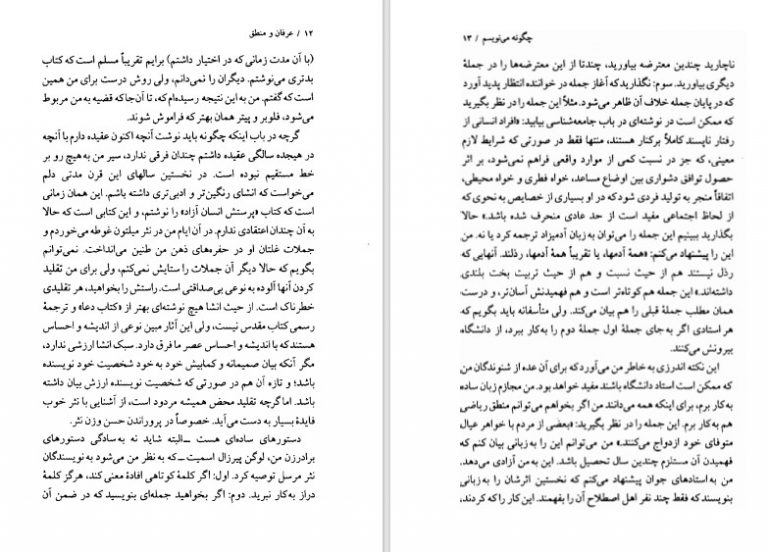 ۱۲ / عرفان و منطق
(با آن مدت زمانی که در اختیار داشتم) برایم تقریباً مسلم است که کتاب
بدتری می‌نوشتم. دیگران را نمی‌دانم، ولی روش درست برای من همین
است که گفتم. من به این نتیجه رسیده‌ام که، تا آن‌جا که قضیه به من مربوط
می‌شود، فلوبر و پیتر همان بهتر که فراموش شوند.
گرچه در باب اینکه چگونه باید نوشت آنچه اکنون عقیده دارم با آنچه
در هیجده سالگی عقیده داشتم چندان فرقی ندارد، سیر من به هیچ رو بر
خط مستقیم نبوده است. در نخستین سالهای این قرن مدتی دلم
می‌خواست که انشای رنگین‌تر و ادبی‌تری داشته باشم. این همان زمانی
است که کتاب «پرستش انسان آزاد» را نوشتم، و این کتابی است که حالا
به آن چندان اعتقادی ندارم. در آن ایام من در نثر میلتون غوطه می‌خوردم و
جملات غلتان او در حفره‌های ذهن من طنین می‌انداخت. نمی‌توانم
بگویم که حالا دیگر آن جملات را ستایش نمی‌کنم، ولی برای من تقلید
کردن آنها آلوده به نوعی بی‌صداقتی است. راستش را بخواهید، هر تقلیدی
خطرناک است. از حیث انشا هیچ نوشته‌ای بهتر از «کتاب دعا» و ترجمهٔ
رسمی کتاب مقدس نیست، ولی این آثار مبین نوعی از اندیشه و احساس
هستند که با اندیشه و احساس عصر ما فرق دارد. سبک انشا ارزشی ندارد،
مگر آنکه بیان صمیمانه و کمابیش خود به خود شخصیت خود نویسنده
باشد؛ و تازه آن هم در صورتی که شخصیت نویسنده ارزش بیان داشته
باشد. اما گرچه تقلید محض همیشه مردود است، از آشنایی با نثر خوب
فایدهٔ بسیار به دست می‌آید. خصوصاً در پروراندن حسن وزن نثر.
دستورهای ساده‌ای هست ــ البته شاید نه به سادگی دستورهای
برادرزن من، لوگن پیرزال اسمیت ــ که به نظر من می‌شود به نویسندگان
نثر مرسل توصیه کرد. اول: اگر کلمهٔ کوتاهی افادهٔ معنی کند، هرگز کلمهٔ
دراز به کار نبرید. دوم: اگر بخواهید جمله‌ای بنویسید که در ضمن آن
چگونه می‌نویسم / ۱۳
ناچارید چندین معترضه بیاورید، چندتا از این معترضه‌ها را در جملهٔ
دیگری بیاورید. سوم: نگذارید که آغاز جمله در خواننده انتظار پدید آورد
که در پایان جمله خلاف آن ظاهر می‌شود. مثلاً این جمله را در نظر بگیرید
که ممکن است در نوشته‌ای در باب جامعه‌شناسی بیابید: «افراد انسانی از
رفتار ناپسند کاملاً برکنار هستند، منتها فقط در صورتی که شرایط لازم
معینی، که جز در نسبت کمی از موارد واقعی فراهم نمی‌شود، بر اثر
حصول توافق دشواری بین اوضاع مساعد، خواه فطری و خواه محیطی،
اتفاقاً منجر به تولید فردی شود که در او بسیاری از خصایص به نحوی که
از لحاظ اجتماعی مفید است از حد عادی منحرف شده باشد.» حالا
بگذارید ببینیم این جمله را می‌توان به زبان آدمیزاد ترجمه کرد یا نه. من
این را پیشنهاد می‌کنم: «همهٔ آدمها، یا تقریباً همهٔ آدمها، رذلند. آنهایی که
رذل نیستند هم از حیث نسبت و هم از حیث تربیت بخت بلندی
داشته‌اند.» این جمله هم کوتاه‌تر است و هم فهمیدنش آسان‌تر، و درست
همان مطلب جملهٔ قبلی را هم بیان می‌کند. ولی متأسفانه باید بگویم که
هر استادی اگر به جای جملهٔ اول جملهٔ دوم را به کار ببرد، از دانشگاه
بیرونش می‌کنند.
این نکته اندرزی به خاطر من می‌آورد که برای آن عده از شنوندگان من
که ممکن است استاد دانشگاه باشند مفید خواهد بود. من مجازم زبان ساده
به کار برم، برای اینکه همه می‌دانند من اگر بخواهم می‌توانم منطق ریاضی
هم به کار برم. این جمله را در نظر بگیرید: «بعضی از مردم با خواهر عیال
متوفای خود ازدواج می‌کنند.» من می‌توانم این را به زبانی بیان کنم که
فهمیدن آن مستلزم چندین سال تحصیل باشد. این به من آزادی می‌دهد.
من به استادهای جوان پیشنهاد می‌کنم که نخستین اثرشان را به زبانی
بنویسند که فقط چند نفر اهل اصطلاح آن را بفهمند. این کار را که کردند،